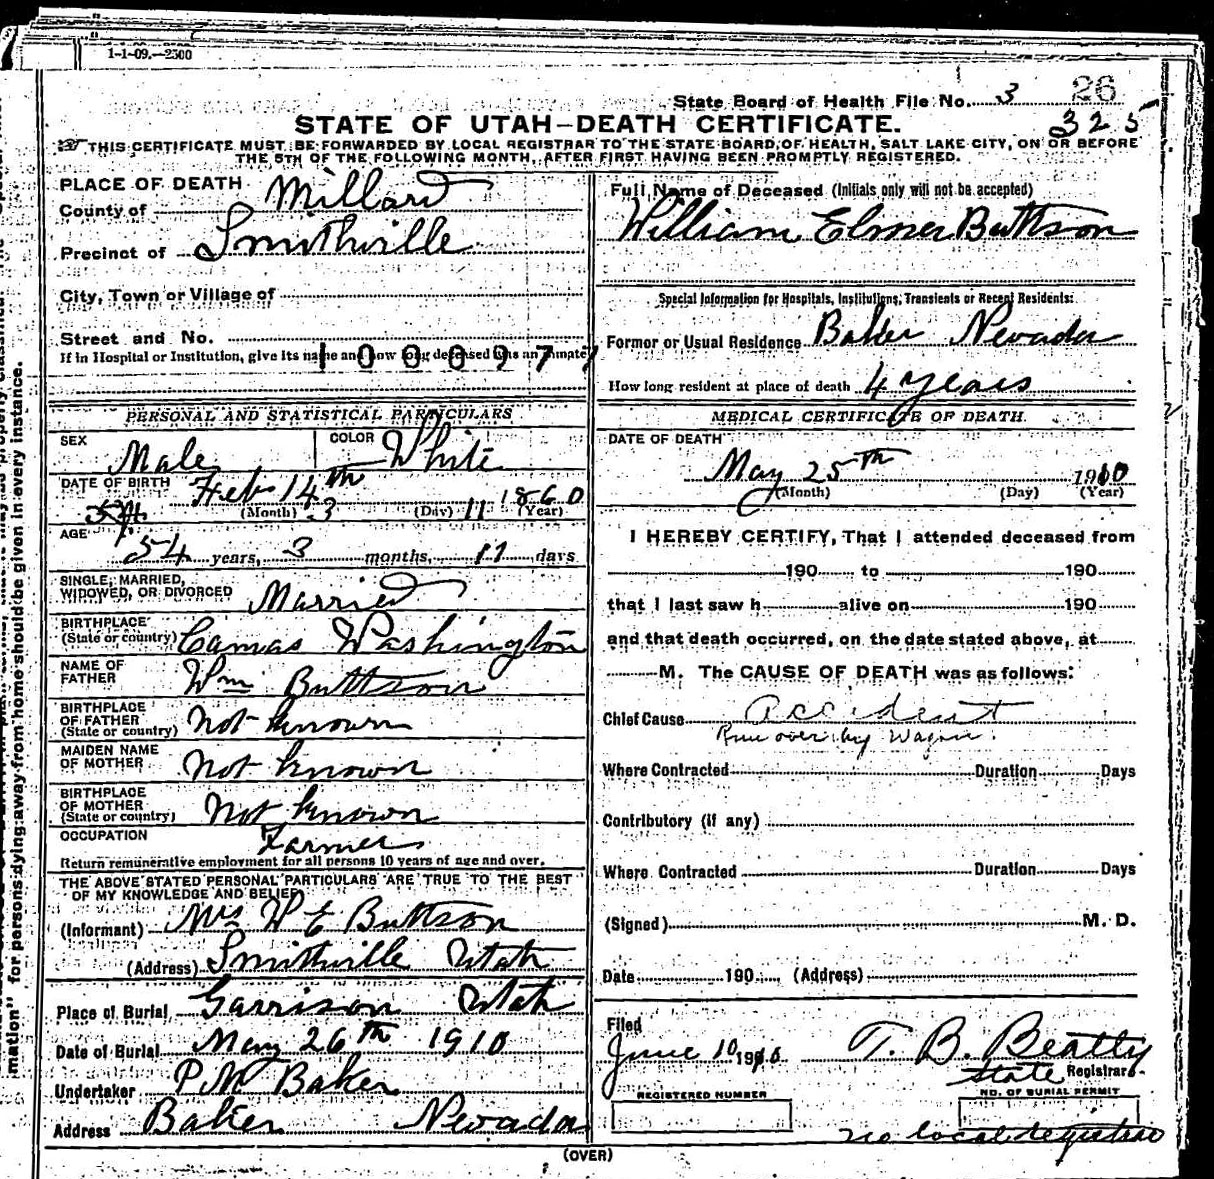 1-1-09.—2500
26
State Board of Health File No. 3
325
STATE OF UTAH—DEATH CERTIFICATE.
THIS CERTIFICATE MUST BE FORWARDED BY LOCAL REGISTRAR TO THE STATE BOARD OF HEALTH, SALT LAKE CITY, ON OR BEFORE
THE 5TH OF THE FOLLOWING MONTH, AFTER FIRST HAVING BEEN PROMPTLY REGISTERED.
PLACE OF DEATH
County of Millard
Precinct of Smithville
City, Town or Village of
Street and No.
If in Hospital or Institution, give its name and how long deceased was an inmate
1000977
Full Name of Deceased (Initials only will not be accepted)
William Elmer Buttson
Special Information for Hospitals, Institutions, Transients or Recent Residents:
Former or Usual Residence Baker Nevada
How long resident at place of death 4 years
PERSONAL AND STATISTICAL PARTICULARS
SEX Male COLOR White
DATE OF BIRTH Feb 14th 1860
54 (Month) 3 (Day) 11 (Year)
AGE
54 years, 3 months, 11 days
SINGLE, MARRIED,
WIDOWED, OR DIVORCED Married
BIRTHPLACE
(State or country) Camas Washington
NAME OF
FATHER Wm Buttson
BIRTHPLACE
OF FATHER
(State or country) Not known
MAIDEN NAME
OF MOTHER Not known
BIRTHPLACE
OF MOTHER
(State or country) Not known
OCCUPATION Farmer
Return remunerative employment for all persons 10 years of age and over.
THE ABOVE STATED PERSONAL PARTICULARS ARE TRUE TO THE BEST
OF MY KNOWLEDGE AND BELIEF
(Informant) Mrs W E Buttson
(Address) Smithville Utah
Place of Burial Garrison Utah
Date of Burial May 26th 1910
Undertaker P M Baker
Address Baker Nevada
MEDICAL CERTIFICATE OF DEATH.
DATE OF DEATH
May 25th 1910
(Month) (Day) (Year)
I HEREBY CERTIFY, That I attended deceased from
190 to 190
that I last saw h alive on 190
and that death occurred, on the date stated above, at
M. The CAUSE OF DEATH was as follows:
Chief Cause Accident
Run over by Wagon.
Where Contracted Duration Days
Contributory (if any)
Where Contracted Duration Days
(Signed) M. D.
Date 190 (Address)
Filed
June 10 1910 T. B. Beatty
State Registrar
REGISTERED NUMBER
NO. OF BURIAL PERMIT
no local registrar
(OVER)
mation" for persons dying away from home should be given in every instance.